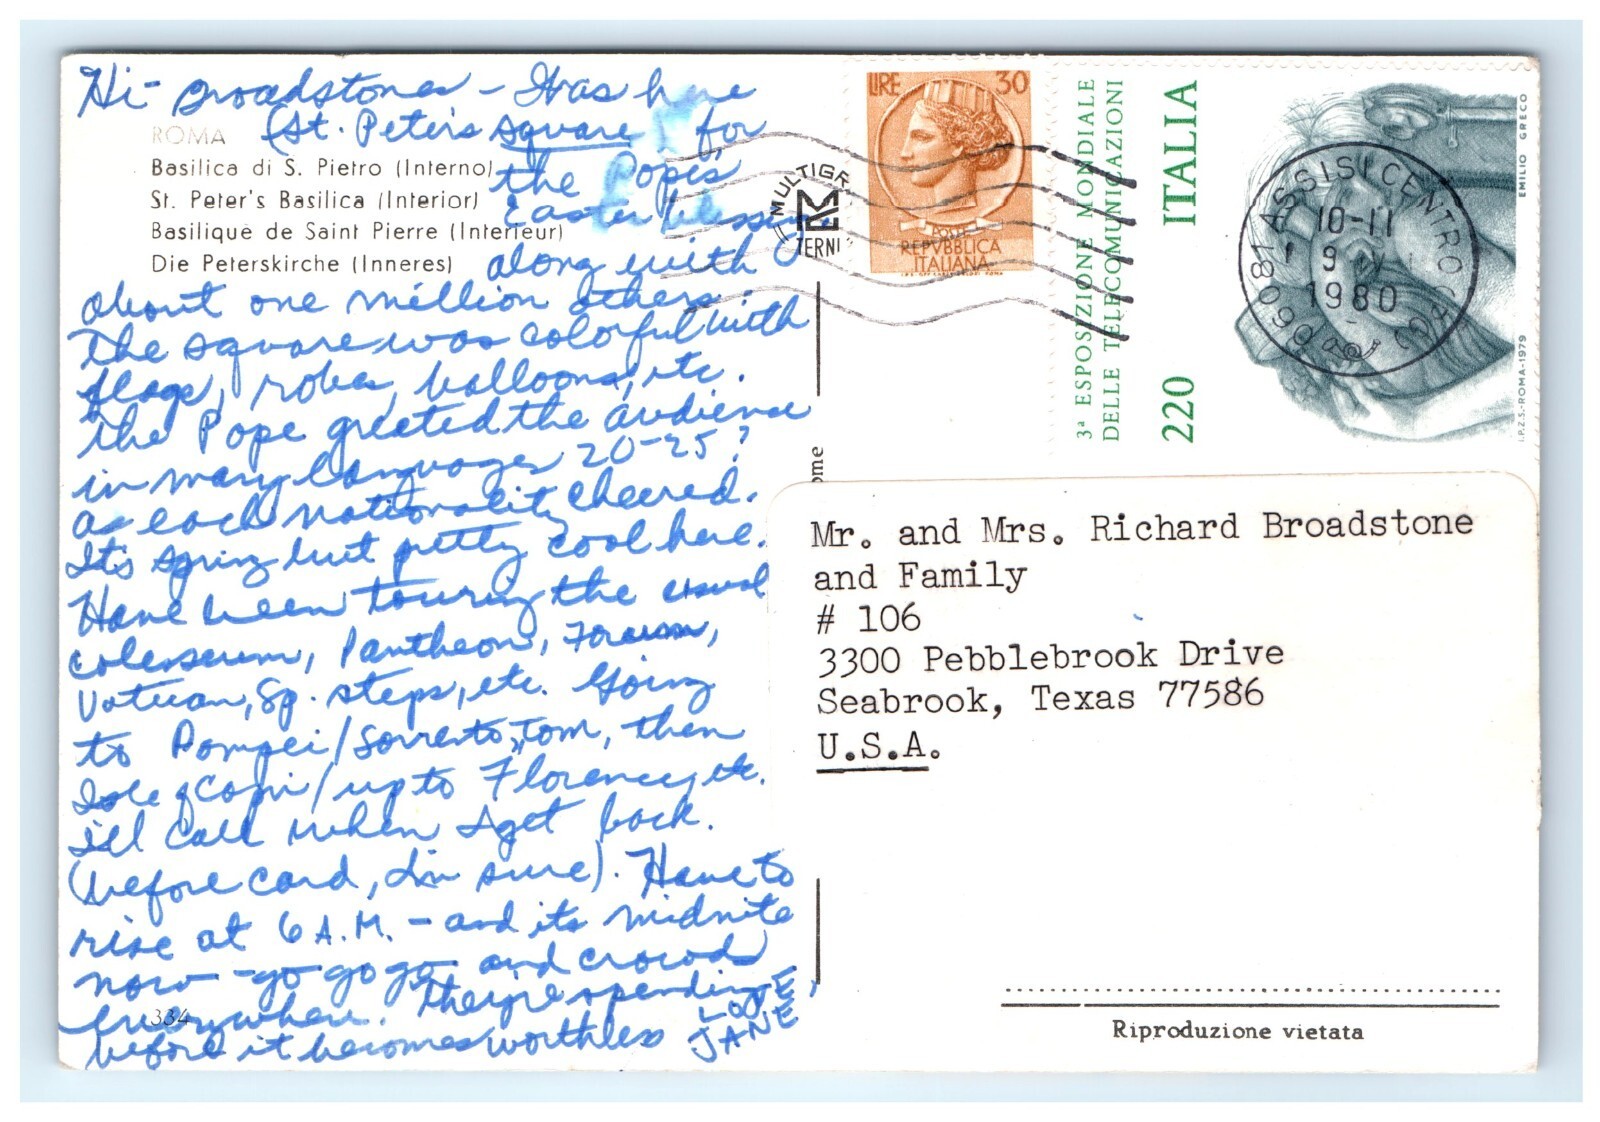 Hi - Broadstones - Was here
(St. Peter's square) for
the Pope's
Easter blessing
along with
about one million others.
The square was colorful with
flags, robes, balloons, etc.
the Pope greeted the audience
in many languages 20-25?
as each nationality cheered.
It's spring but pretty cool here.
Have been touring the usual
Colesseum, Pantheon, Forum,
Vatican, Sp. steps, etc. Going
to Pompei/Sorrento, tom, then
Isle of Capri/up to Florence, etc.
I'll call when I get back.
(before card, I'm sure). Have to
rise at 6 A.M. - and its midnite
now - go go go and crowd
everywhere. They're spending
before it becomes worthless
LOVE,
JANE
ROMA
Basilica di S. Pietro (Interno)
St. Peter's Basilica (Interior)
Basilique de Saint Pierre (Interieur)
Die Peterskirche (Inneres)
334
MULTIGR
TERNI
LIRE 30
POSTE
REPVBBLICA
ITALIANA
3ª ESPOSIZIONE MONDIALE
DELLE TELECOMUNICAZIONI
220 ITALIA
EMILIO GRECO
I.P.Z.S.-ROMA-1979
06081 ASSISI CENTRO
10-11
9 IV
1980
ome
Mr. and Mrs. Richard Broadstone
and Family
# 106
3300 Pebblebrook Drive
Seabrook, Texas 77586
U.S.A.
Riproduzione vietata